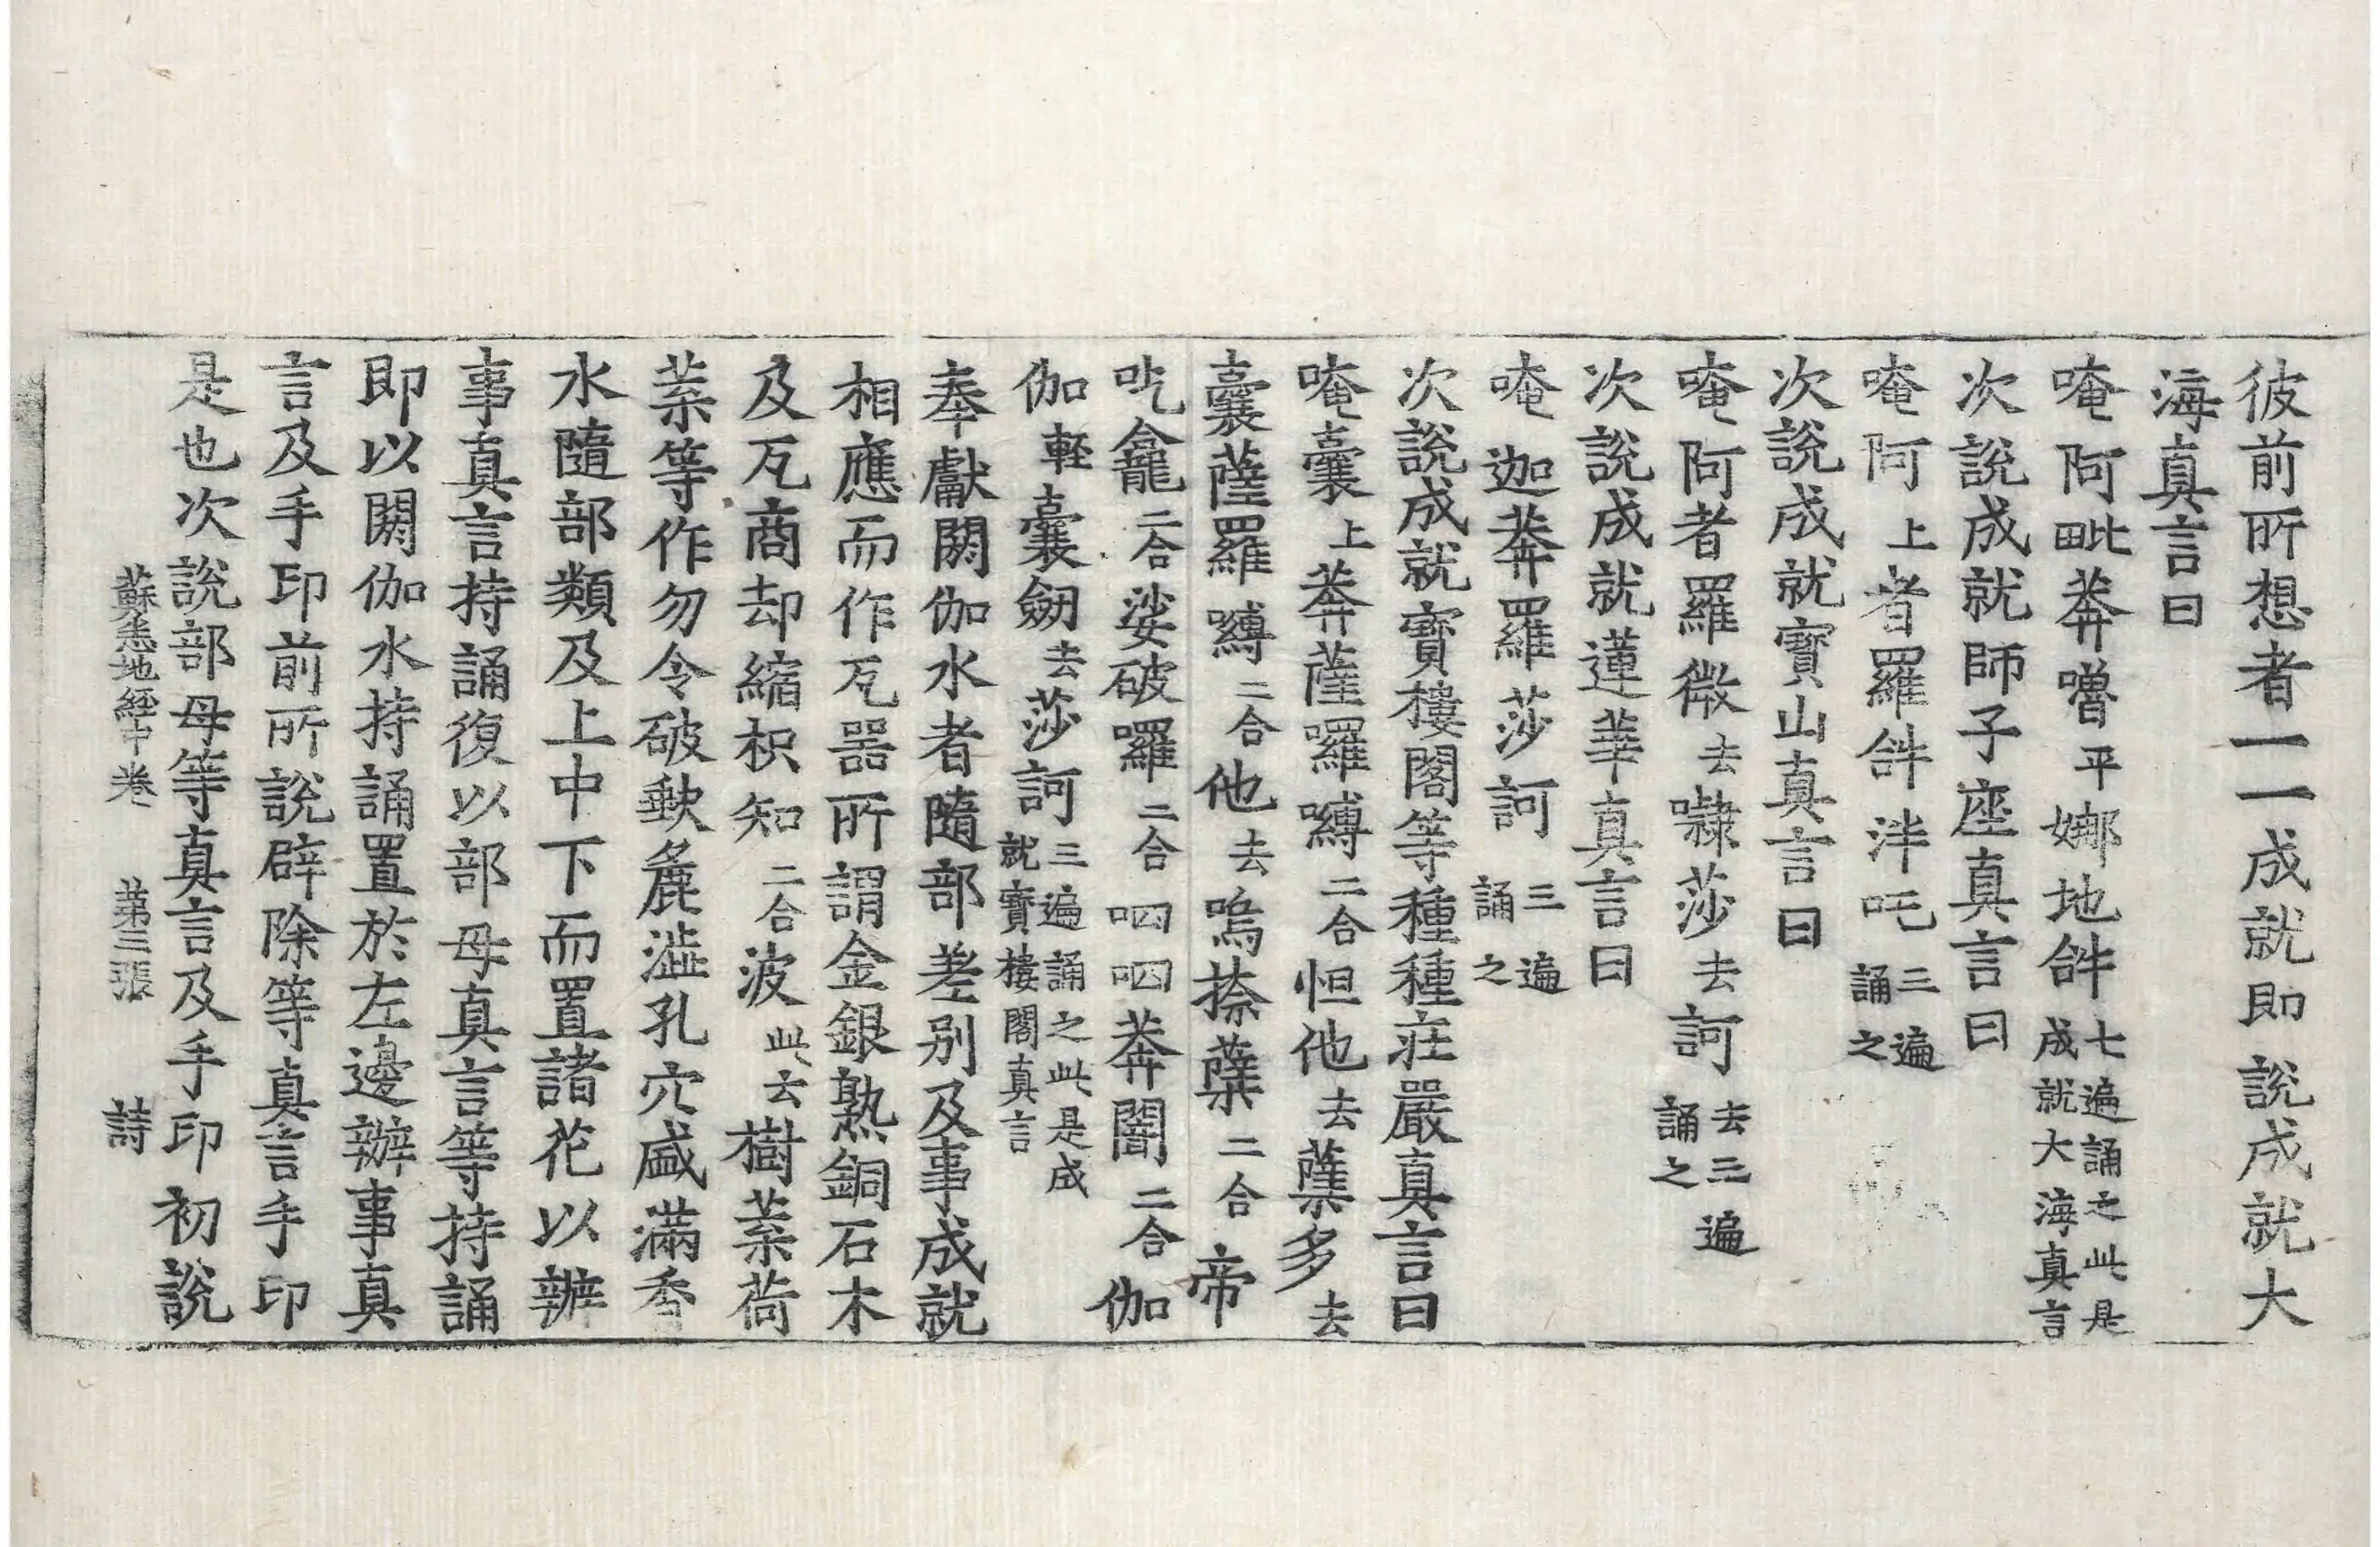 彼前所想者一一成就即說成就大
海真言曰
唵阿毗莾嚕平娜地𤙖七遍誦之此是成就大海真言
次說成就師子座真言曰
唵阿上者羅𤙖泮吒三遍誦之
次說成就寶山真言曰
唵阿者羅微去㘑莎去訶去三遍誦之
次說成就蓮華真言曰
唵迦莾羅莎訶三遍誦之
次說成就寶樓閣等種種莊嚴真言曰
唵囊上莾薩囉嚩二合怛他去蘖多去
囊薩羅嚩二合他去嗚捺蘖二合帝
吃龕二合娑破囉二合呬呬莾闇二合伽
伽輕囊劒去莎訶三遍誦之此是成就寶樓閣真言
奉獻閼伽水者隨部差別及事成就
相應而作瓦器所謂金銀熟銅石木
及瓦商却縮枳知二合波此云樹葉荷
葉等作勿令破缺麁澁孔穴盛滿香
水隨部類及上中下而置諸花以辦
事真言持誦復以部母真言等持誦
即以閼伽水持誦置於左邊辦事真
言及手印前所說辟除等真言手印
是也次說部母等真言及手印初說
蘇悉地經中卷 第三張 詩